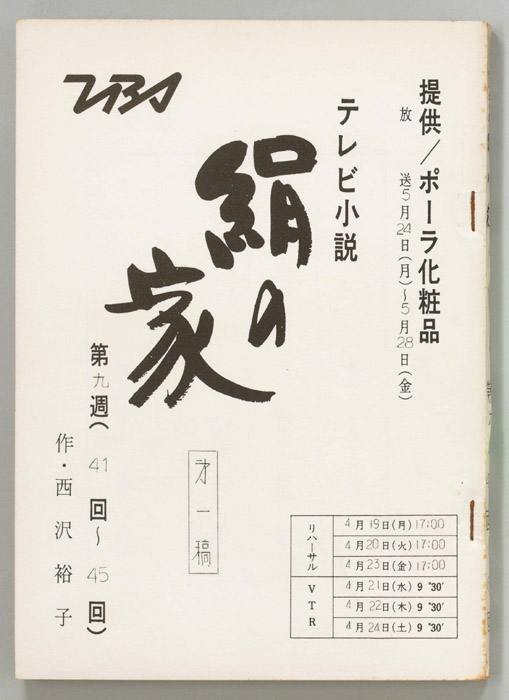 提供／ポーラ化粧品
放送5月24日(月)〜5月28日(金)
テレビ小説
絹の家
TBS
第九週(41回〜45回)
作・西沢裕子
第一稿
リハーサル
4月19日(月)17:00
4月20日(火)17:00
4月23日(金)17:00
VTR
4月21日(水)9°30′
4月22日(木)9°30′
4月24日(土)9°30′